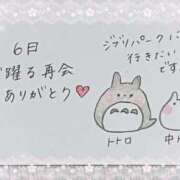 6日
躍る再会
ありがとう
ジブリパークに
行きたい
です
トトロ
中ト